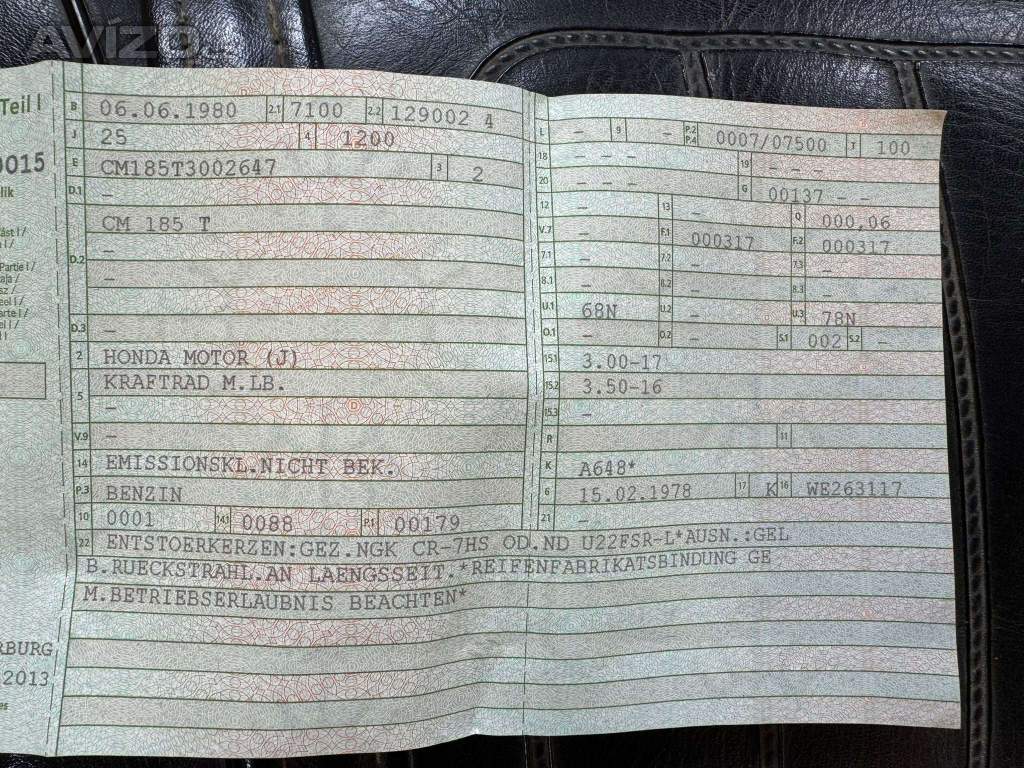 AVÍZO
Teil I
B 06.06.1980 2.1 7100 2.2 129002 4
J 25 4 1200
0015
E CM185T3002647 3 2
D.1 –
CM 185 T
D.2 –
–
D.3 –
2 HONDA MOTOR (J)
5 KRAFTRAD M.LB.
–
V.9 –
14 EMISSIONSKL.NICHT BEK.
P.3 BENZIN
10 0001 14.1 0088 P.1 00179
L – 9 – P.2 P.4 0007/07500 T 100
18 – – – 19 – – –
20 – – – G 00137 –
12 – 13 – Q 000,06
V.7 – F.1 000317 F.2 000317
7.1 – 7.2 – 7.3 –
8.1 – 8.2 – 8.3 –
U.1 68N U.2 – U.3 78N
O.1 – O.2 – S.1 002 S.2 –
15.1 3.00-17
15.2 3.50-16
15.3 –
R 11
K A648*
6 15.02.1978 17 K 16 WE263117
21 –
22 ENTSTOERKERZEN:GEZ.NGK CR-7HS OD.ND U22FSR-L*AUSN.:GEL
B.RUECKSTRAHL.AN LAENGSSEIT.*REIFENFABRIKATSBINDUNG GE
M.BETRIEBSERLAUBNIS BEACHTEN*
RBURG
2013